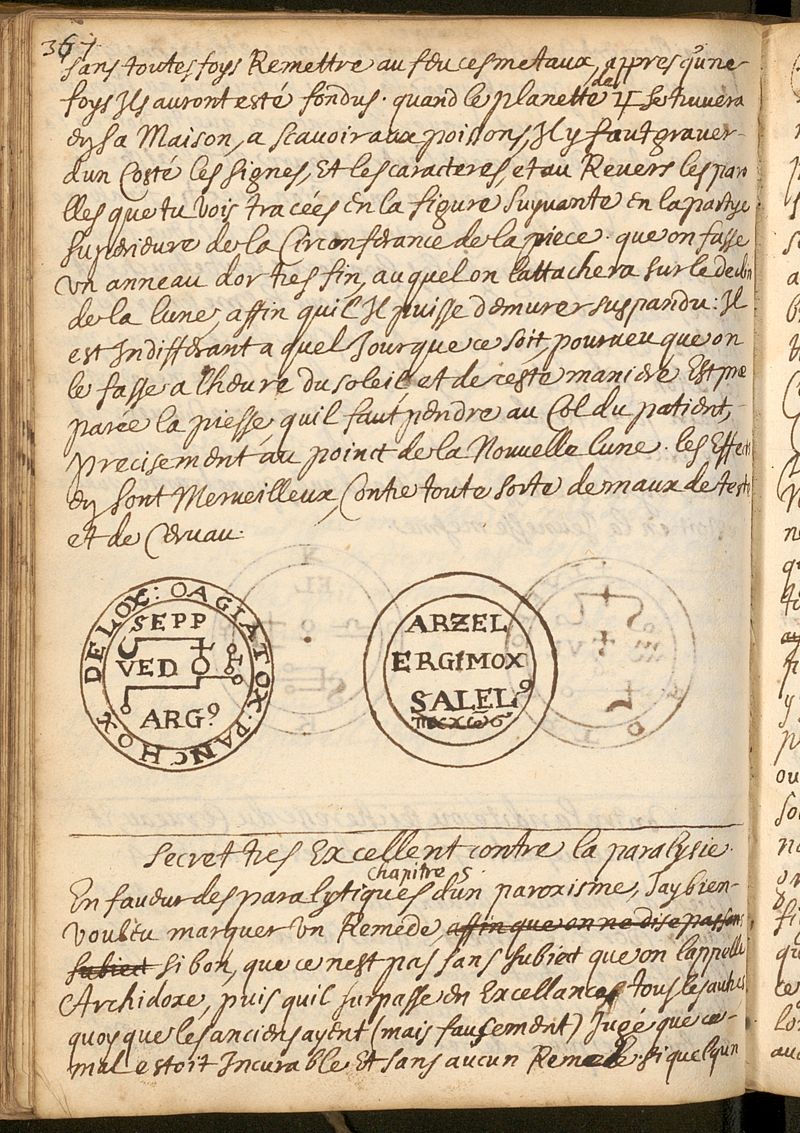 367
sans toutesfoys Remettre au feu ces metaux, appres qu'une
foys Ils auront esté fondus. quand le planette de ♃ se truvera
en sa Maison, a scavoir aux poissons, Il y faut graver
d'un Costé les signes, Et les caracteres, et au Revers les paro
lles que tu vois tracées En la figure suyvante en la partye
superieure de la Circonferance de la piece. que on fasse
un anneau d'or tres fin, auquel on l'attachera sur le declin
de la lune, affin quil Il puisse demurer suspandu: Il
est Indifferant a quel Jour que ce soit, pourveu que on
le fasse a l'heure du soleil, et de ceste maniere Est præ
parée la piesse, quil faut pendre au Col du patient,
precisement au poinct de la Nouvelle lune. les Effets
en sont Merveilleux, Contre toute sorte de maux de teste
et de Cervau.
DELOX: OAGIATOX. PANCHOX
SEPP
VED
ARGº
ARZEL
ERGIMOX
SALELº
Secret tres Excellent contre la paralysie.
Chapitre 5.
En faveur des paralytiques d'un paroxisme, J'ay bien
vouleu marquer un Remede, affin que on ne dise pas sans
subiect si bon, que ce n'est pas sans subiect que on l'appelle
Archidoxe, puis quil surpasse en Excellance tous les autres
quoy que les anciens ayent (mais fausement) Jugé que ce
mal estoit Incurable Et sans aucun Remede. si quelqun